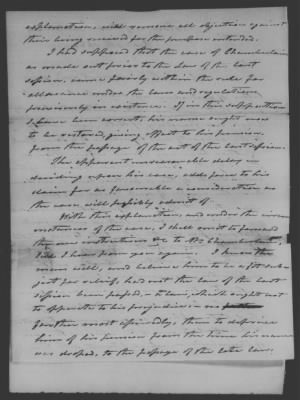 explanation, will remove all objection against
their being received for the purpose intended.
I had supposed that the case of Chamberlain
as made out prior to the Law of the last
session, came fairly within the rules for
allowance under the laws and regulations,
previously in existence. If in this supposition
I have been correct, his name ought now
to be restored, giving effect to his pension
from the passage of the act of the last session.
The apparent unreasonable delay in
deciding upon his case, adds force to his
claim for as favorable a consideration as
the case will possibly admit of.
With this explanation, and under the circum
stances of the case, I shall omit to forward
the instructions &c to Mr Chamberlain,
till I hear from you again. I know the
man well, and believe him to be a fit sub-
ject for relief, had not the law of the last
session been passed, a law, which ought not
to operate to his prejudice in one
further most assuredly, than to deprive
him of his pension from the time his name
was dropped, to the passage of the late law.